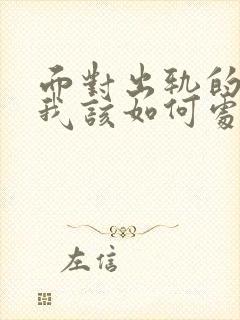 而對出軌的
我該如何處
左信